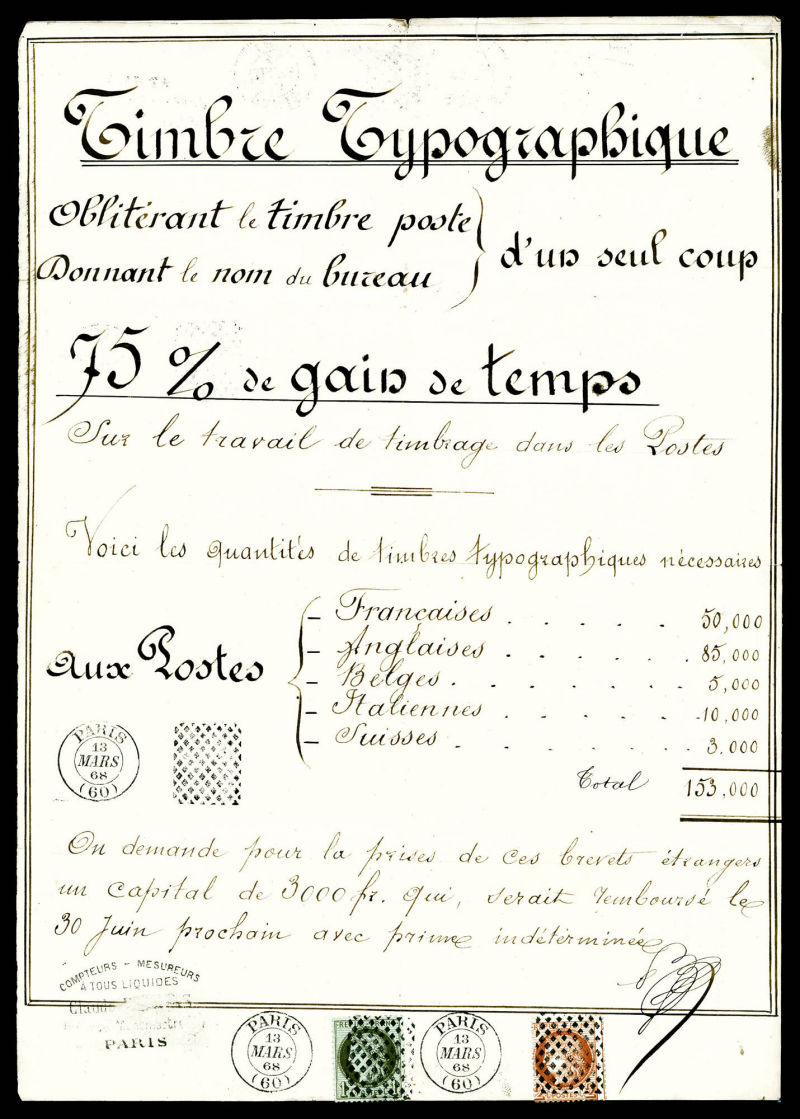 Timbre Typographique
Oblitérant le timbre poste
Donnant le nom du bureau
d'un seul coup
75 % de gain de temps
Sur le travail de timbrage dans les Postes
Voici les quantités de timbres typographiques nécessaires
Aux Postes
– Françaises . . . . . 50,000
– Anglaises . . . . . 85,000
– Belges . . . . . . . 5,000
– Italiennes . . . . . 10,000
– Suisses . . . . . . . 3.000
Total 153,000
PARIS
13
MARS
68
(60)
On demande pour la prises de ces brevets étrangers
un capital de 3000 fr. qui, serait remboursé le
30 Juin prochain avec prime indéterminée
COMPTEURS - MESUREURS
A TOUS LIQUIDES
Claude
PARIS
PARIS
13
MARS
68
(60)
PARIS
13
MARS
68
(60)